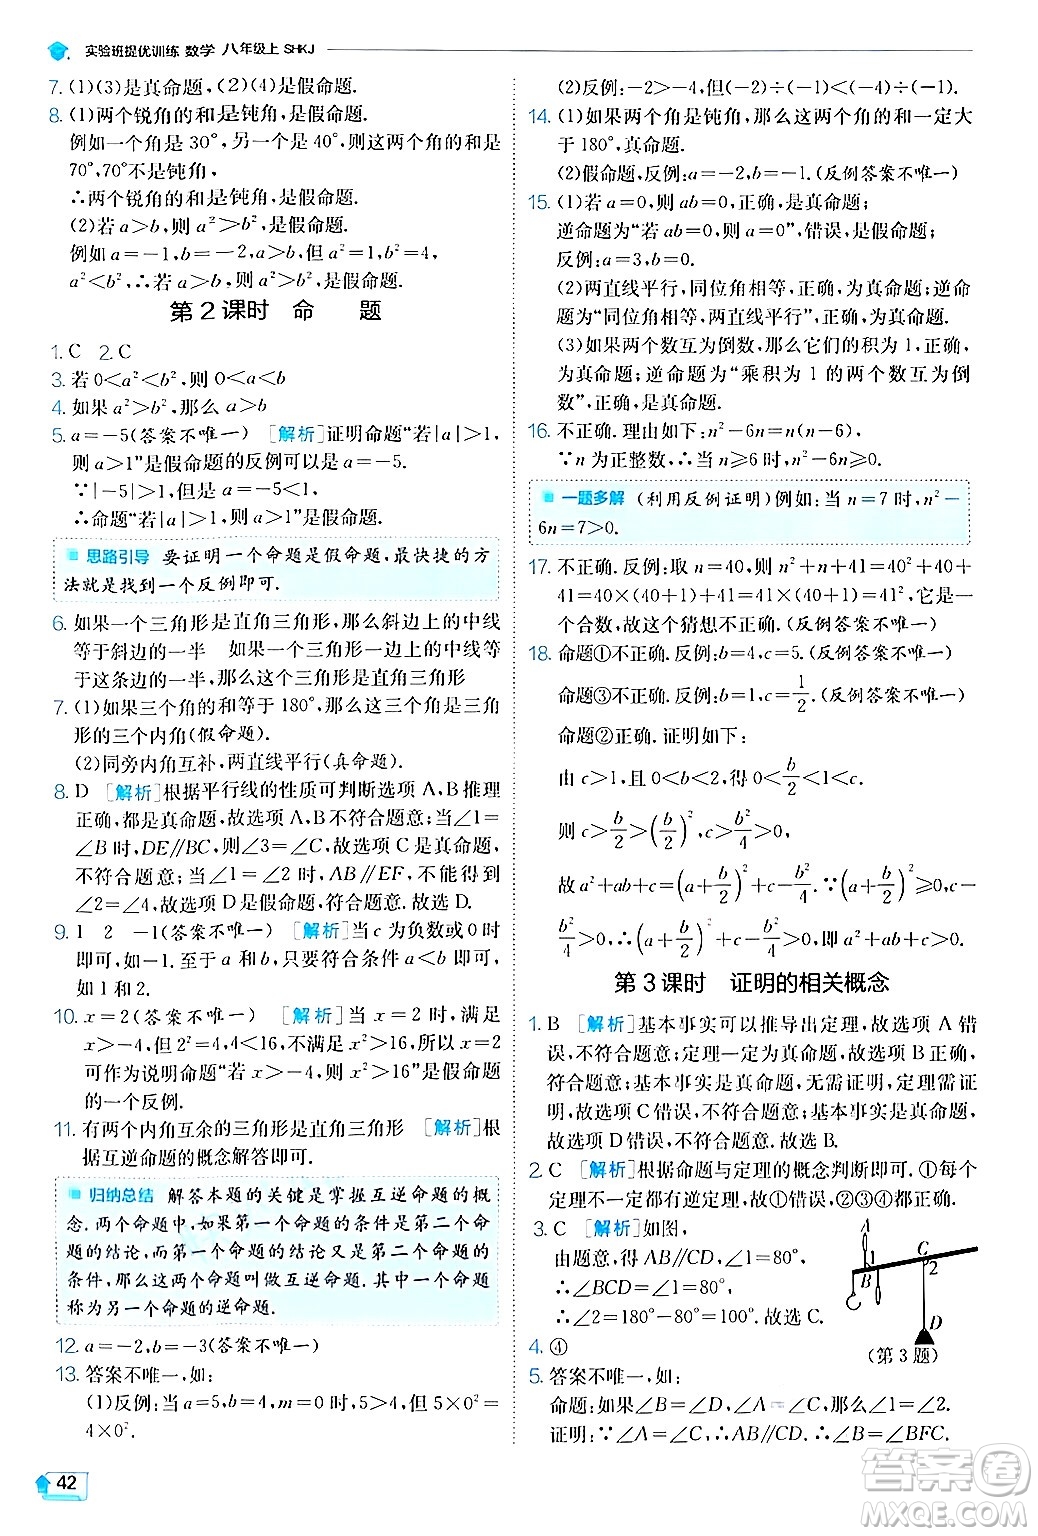 实验班提优训练 数学 八年级上 SHKJ
7. (1)(3)是真命题,(2)(4)是假命题.
8. (1)两个锐角的和是钝角,是假命题.
例如一个角是30°,另一个是40°,则这两个角的和是
70°,70°不是钝角,
∴两个锐角的和是钝角,是假命题.
(2)若a>b,则a²>b²,是假命题.
例如a=-1,b=-2,有a>b,但a²=1,b²=4,
a²<b²,∴若a>b,则a²>b²,是假命题.
第2课时 命 题
1. C 2. C
3. 若0<a²<b²,则0<a<b
4. 如果a²>b²,那么a>b
5. a=-5(答案不唯一) [解析]证明命题“若|a|>1,
则a>1”是假命题的反例可以是a=-5.
∵|-5|>1,但是-5<1,
∴命题“若|a|>1,则a>1”是假命题.
思路引导 要证明一个命题是假命题,最快捷的方
法就是找到一个反例即可.
6. 如果一个三角形是直角三角形,那么斜边上的中线
等于斜边的一半 如果一个三角形一边上的中线等于
这条边的一半,那么这个三角形是直角三角形
7. (1)如果三个角的和等于180°,那么这三个角是三角
形的三个内角(假命题).
(2)同旁内角互补,两直线平行(真命题).
8. D [解析]根据平行线的性质可判断选项A,B推理
正确,都是真命题,故选项A,B不符合题意;当∠1=
∠B时,DE∥BC,则∠2=∠3,故选项C是真命题,
不符合题意;当∠1=∠2时,AB∥EF,不能得到
∠2=∠4,故选项D是假命题,符合题意.故选D.
9. 1 2 -1(答案不唯一) [解析]当c为负数或0时
即可,如-1.至于a和b,只要符合条件a<b即可,
如1和2.
10. x=2(答案不唯一) [解析]当x=2时,满足x>
-4,但2²=4<16,不满足x²>16,所以x=2
可作为说明命题“若x>-4,则x²>16”是假命题
的一个反例.
11. 有两个内角互余的三角形是直角三角形 [解析]根
据互逆命题的概念解答即可.
归纳总结 解答本题的关键是掌握互逆命题的概
念.两个命题中,如果第一个命题的条件是第二个命
题的结论,而第一个命题的结论又是第二个命题的
条件,那么这两个命题叫做互逆命题.其中一个命题
称为另一个命题的逆命题.
12. a=-2,b=-3(答案不唯一)
13. 答案不唯一,如:
(1)反例:当a=5,b=4,m=0时,5>4,但5×0²=
4×0²=0.
42
(2)反例:-2>-4,但(-2)÷(-1)<(-4)÷(-1).
14. (1)如果两个角是钝角,那么这两个角的和一定大
于180°,真命题.
(2)假命题,反例:a=-2,b=-1.(反例答案不唯一)
15. (1)若a=0,则ab=0,正确,是真命题;
逆命题为“若ab=0,则a=0”,错误,是假命题;
反例:a=3,b=0.
(2)两直线平行,同位角相等,正确,为真命题;逆命
题为“同位角相等,两直线平行”,正确,为真命题.
(3)如果两个数互为倒数,那么它们的积为1,正确,
是真命题;逆命题为“乘积为1的两个数互为倒
数”,正确,是真命题.
16. 不正确.理由如下:n²-6n=n(n-6),
∵n为正整数,∴当n≥6时,n²-6n≥0.
一题多解 (利用反例证明)例如:当n=7时,n²-
6n=7>0.
17. 不正确.反例:取n=40,则n²+n+41=40²+40+
41=40×(40+1)+41=41×(40+1)=41²,它是一
个合数,故这个猜想不正确.(反例答案不唯一)
18. 命题①不正确.反例:b=4,c=5.(反例答案不唯一)
命题③不正确.反例:b=1,c=1/2.(反例答案不唯一)
命题②正确.证明如下:
由c>1,且0<b<2,得0<b/2<1<c.
则c>b/2>(b/2)²,c>b²/4>0,
故a²+ab+c=(a+b/2)²+c-b²/4.∵(a+b/2)²≥0,c-
b²/4>0,∴(a+b/2)²+c-b²/4>0,即a²+ab+c>0.
第3课时 证明的相关概念
1. B [解析]基本事实可以推导出定理,故选项A错
误,不符合题意;定理一定是真命题,故选项B正确,
符合题意;基本事实是真命题,无需证明,定理需证
明,故选项C错误,不符合题意;基本事实是真命题,
故选项D错误,不符合题意.故选B.
2. C [解析]根据命题与定理的概念判断即可.①每个
定理不一定都有逆定理,故①错误;②③④都正确.
3. C [解析]如图,
由题意,得AB∥CD,∠1=80°,
∴∠BCD=∠1=80°,
∴∠2=180°-80°=100°.故选C.
A
1
B
C
2
D
(第3题)
4. ④
5. 答案不唯一,如:
命题:如果∠B=∠D,∠A=∠C,那么∠1=∠2.
证明:∵∠B=∠D,∴AB∥CD,∴∠A=∠BFC.
答案圈
MXQE.COM